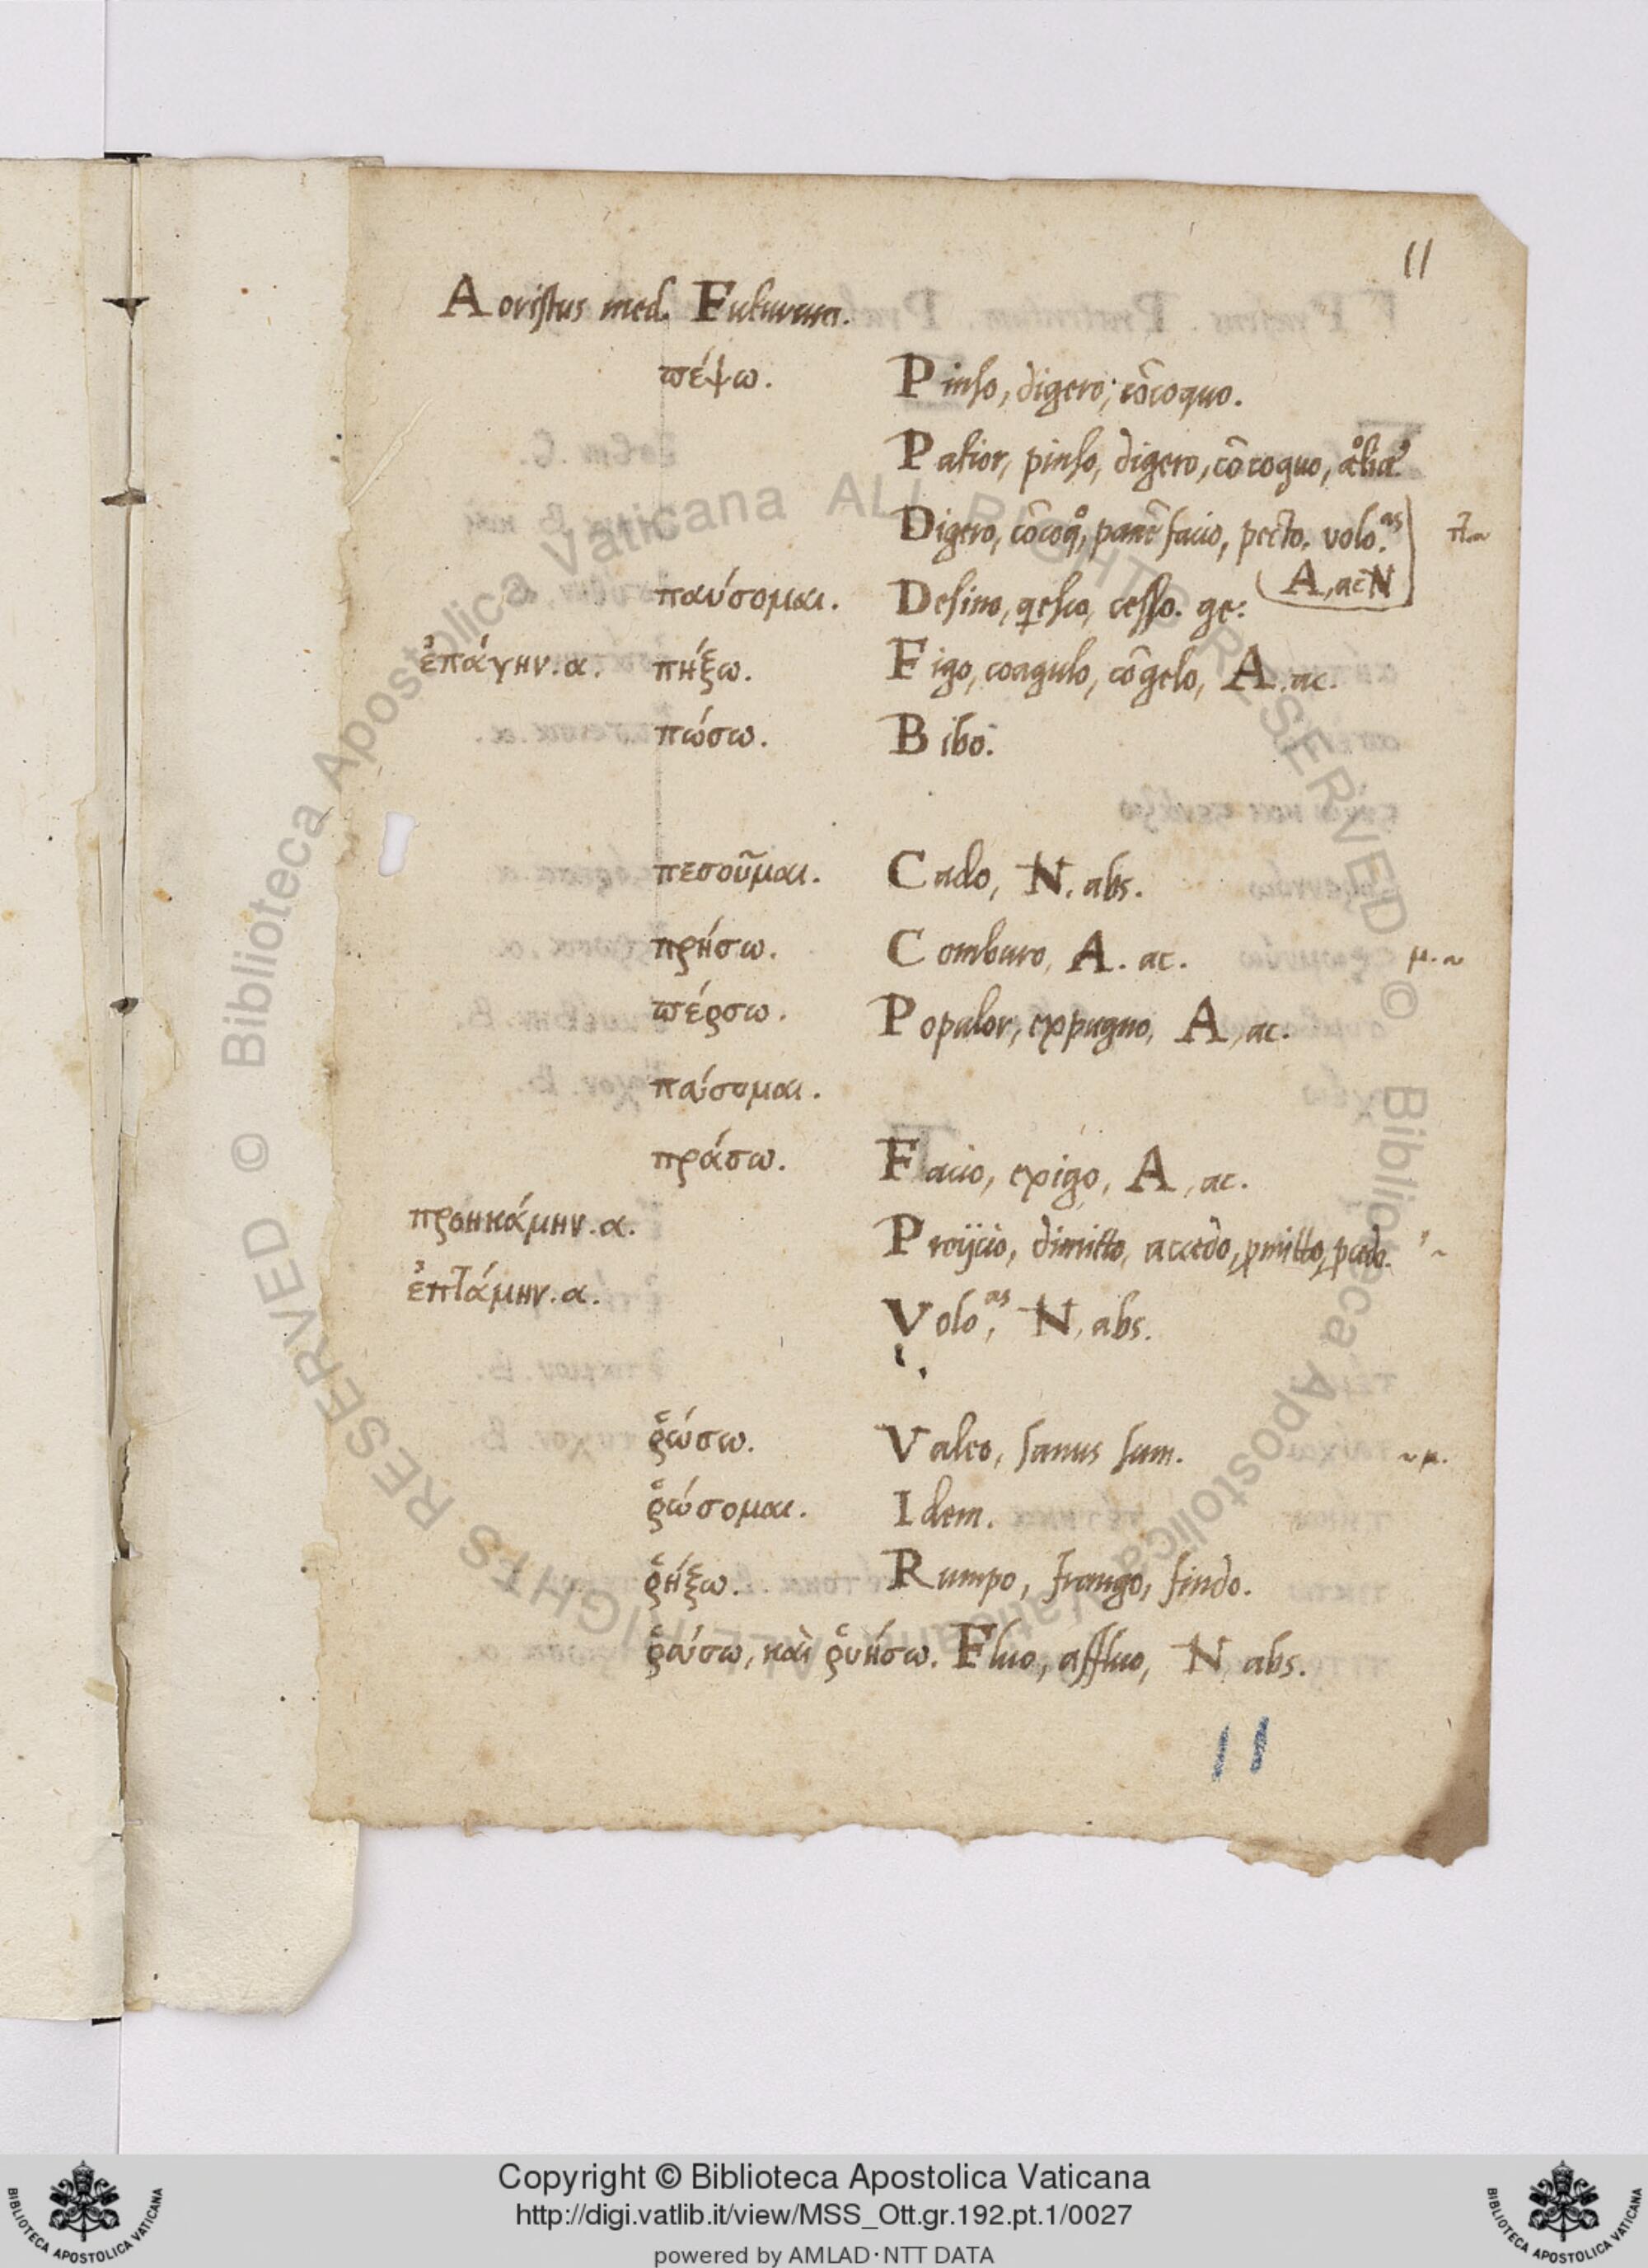 11
Aoristus med. Futurum.
πέψω. Pinso, digero, cōcoquo.
Patior, pinso, digero, cōcoquo,
Digero, cōcoqͦ, panē facio, pecto. volo.ᵃˢ π.~
A, ac N
παύσομαι. Desino, qesco, cesso. ge:
ἐπάγην.α. πήξω. Figo, coagulo, cōgelo, A. ac.
πώσω. Bibo.
πεσοῦμαι. Cado, N. abs.
πρήσω. Comburo, A. ac. μ.~
πέρσω. Popalor, expugno, A, ac.
παίσομαι.
πράσω. Facio, exigo, A, ac.
προηκάμην.α. Proijcio, dimitto, accedo, pmitto, pedo.
ἐπτάμην.α. Voloᵃˢ, N, abs.
ῥώσω. Valeo, sanus sum. ~μ.
ῥώσομαι. Idem.
ῥήξω. Rumpo, frango, findo.
ῥαύσω, καὶ ῥυήσω. Fluo, affluo, N abs.
11
© Biblioteca Apostolica Vaticana ALL RIGHTS RESERVED © Biblioteca Apostolica Vaticana ALL RIGHTS RESERVED
Copyright © Biblioteca Apostolica Vaticana
http://digi.vatlib.it/view/MSS_Ott.gr.192.pt.1/0027
powered by AMLAD·NTT DATA
BIBLIOTECA APOSTOLICA VATICANA
BIBLIOTECA APOSTOLICA VATICANA